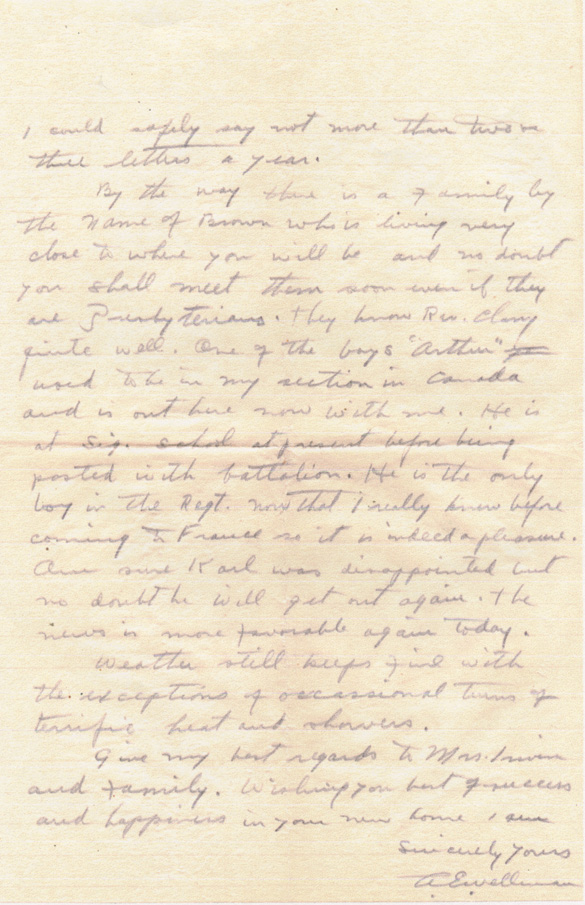 I could safely say not more than two or
three letters a year.
By the way there is a family by
the name of Brown who is living very
close to where you will be and no doubt
you shall meet them soon even if they
are Presbyterians. They know Rev.
quite well. One of the boys "Arthur"
used to be in my section in Canada
and is out here now with me. He is
at Sig. school at present before being
posted with battalion. He is the only
boy in the Regt. now that I really knew before
coming to France so it is indeed a pleasure.
Am sure Karl was disappointed but
no doubt he will get out again. The
news is more favorable again today.
Weather still keeps fine with
the exceptions of occassional turns of
terrific heat and showers.
Give my best regards to Mrs. Irwin
and family. Wishing you best of success
and happiness in your new home I am
Sincerely yours